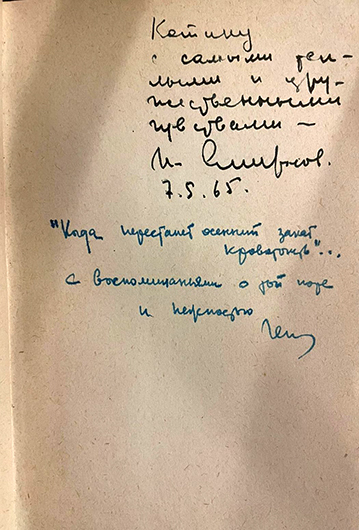 Катину
с самыми теп-
лыми и дру-
жественными
чувствами —
И. Смирнов.
7.5.65.
"Когда перестанет осенний закат
кровоточить"...
с воспоминаньями о той поре
и нежностью